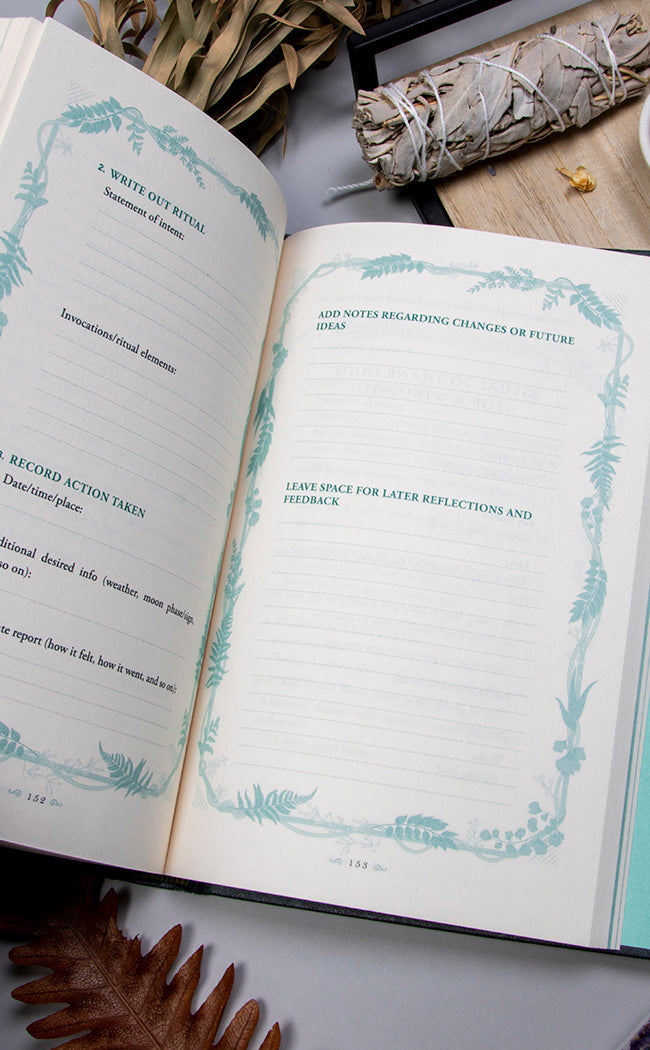 2. WRITE OUT RITUAL
Statement of intent:
Invocations/ritual elements:
3. RECORD ACTION TAKEN
Date/time/place:
desired info (weather, moon phase/sign,
so on):
report (how it felt, how it went, and so on):
152
ADD NOTES REGARDING CHANGES OR FUTURE
IDEAS
LEAVE SPACE FOR LATER REFLECTIONS AND
FEEDBACK
153